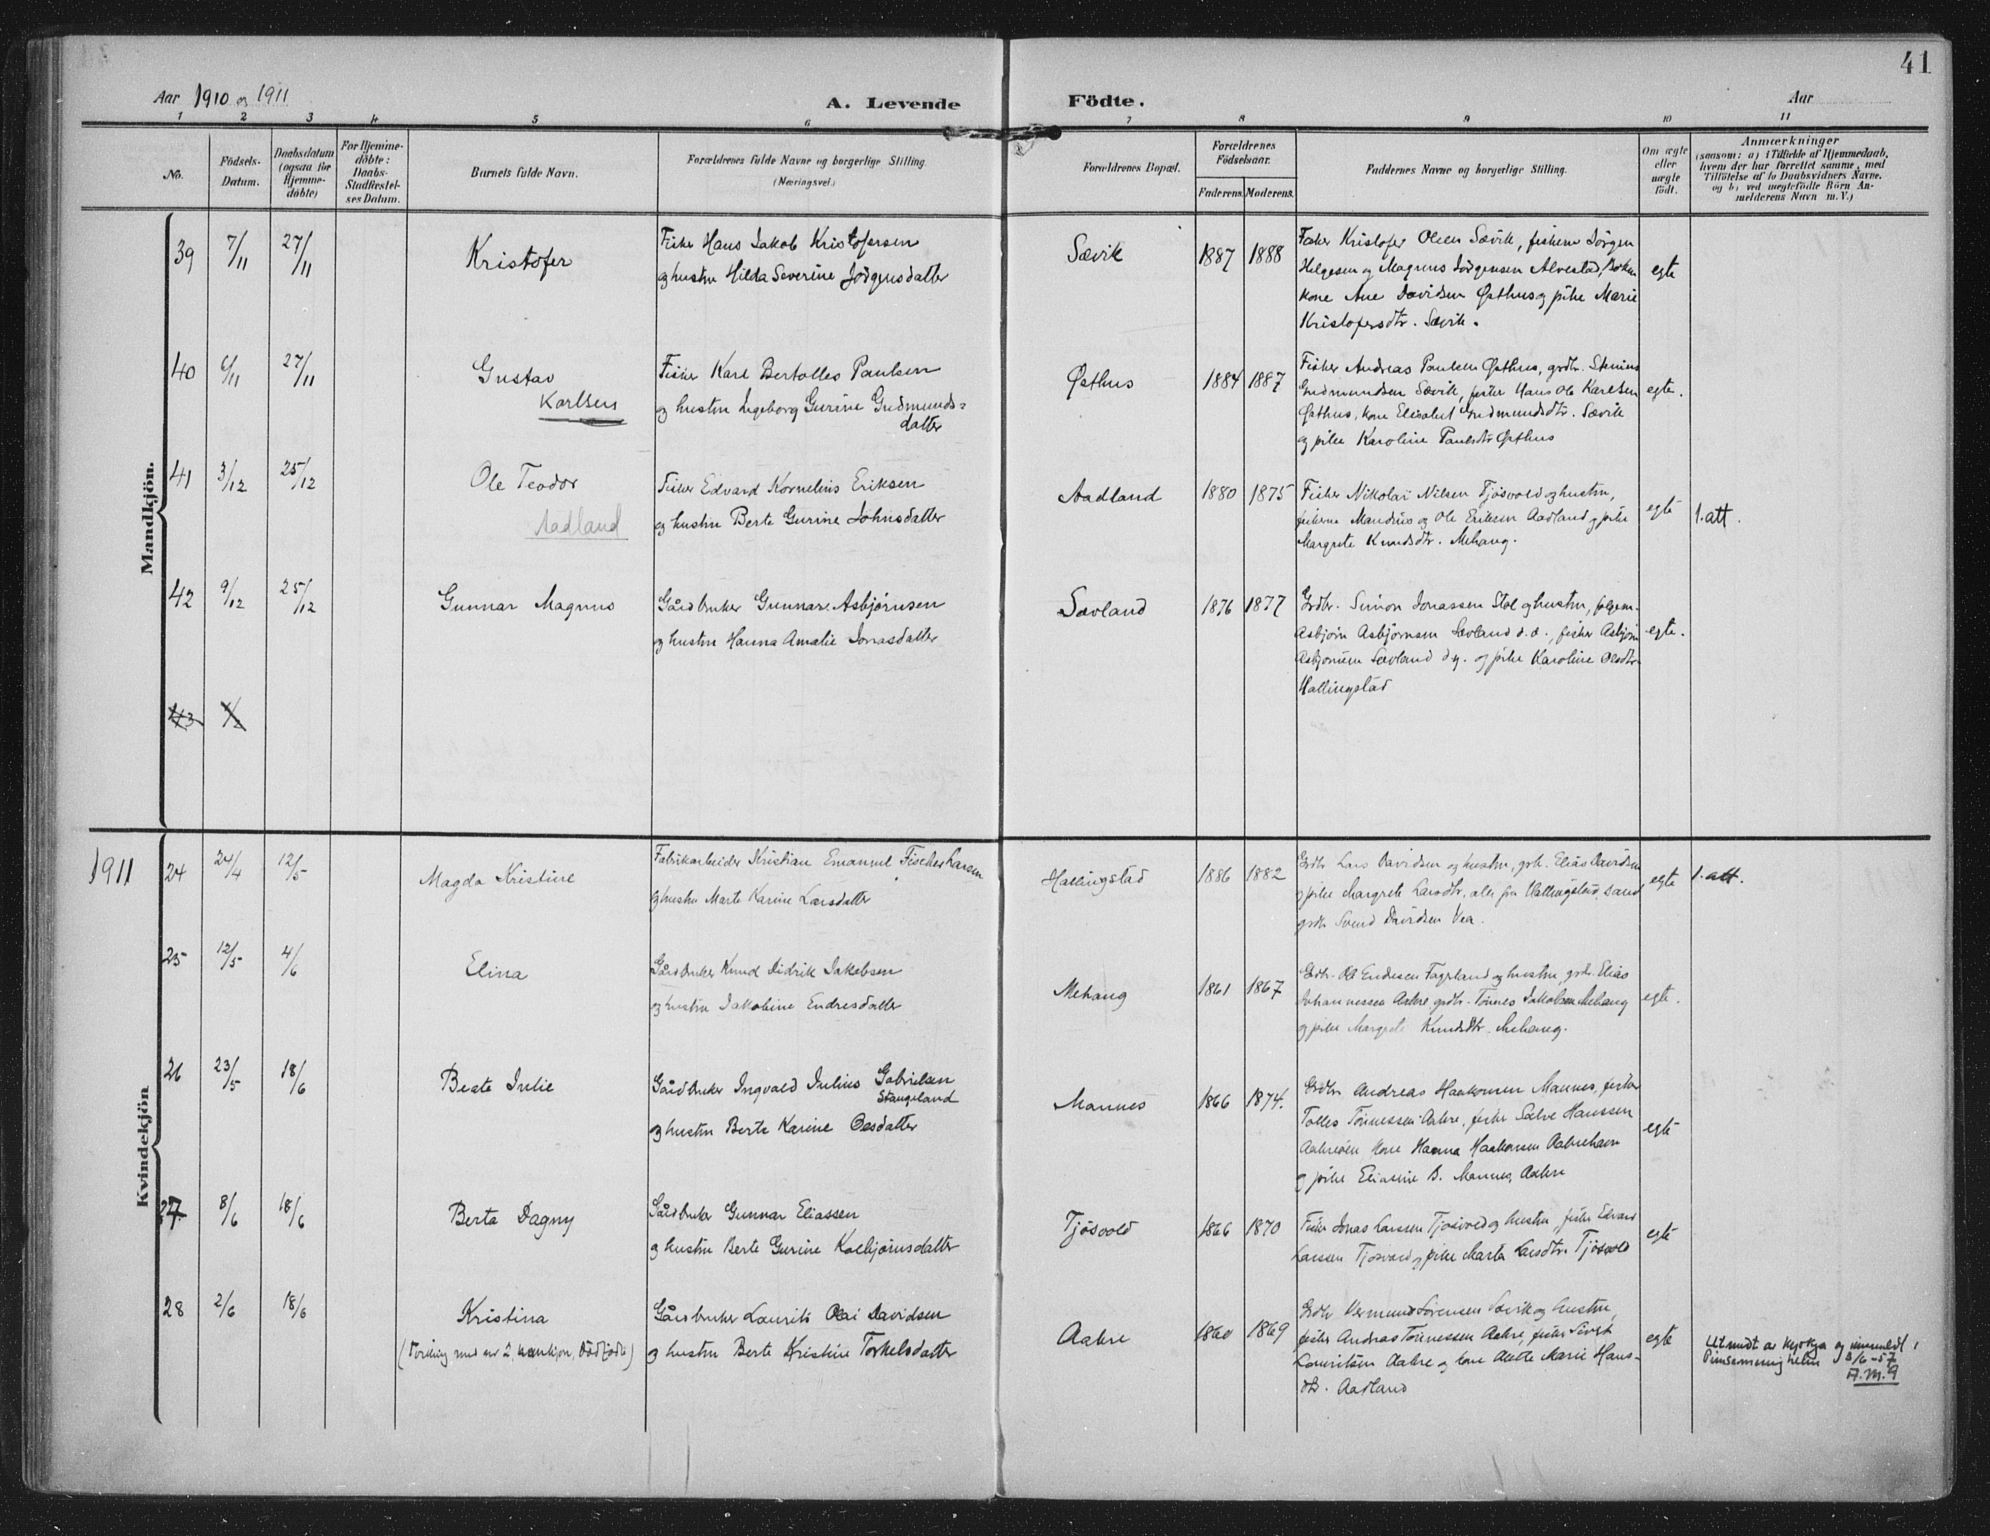 41
Aar 1910 og 1911
A. Levende Födte.
Aar
1 2 3 4 5 6 7 8 9 10 11
No.
Födsels-Datum.
Daabsdatum (ogsaa for Hjemme-döbte)
For Hjemme-döbte: Daabs-Stadfæstel-ses Datum.
Barnets fulde Navn.
Forældrenes fulde Navne og borgerlige Stilling. (Næringsvei.)
Forældrenes Bopæl.
Forældrenes Födselsaar.
Faderens. Moderens.
Faddernes Navne og borgerlige Stilling.
Om ægte eller uægte födt.
Anmærkninger
(saasom: a) i Tilfælde af Hjemmedaab,
hvem der har forrettet samme, med
Tilföielse af to Daabsvidners Navne,
og b) ved uægtefödte Börn An-
melderens Navn m. V.)
Mandkjön.
39 7/11 27/11 Kristofer
Fisker Hans Jakob Kristofersen
og hustru Hilda Severine Jørgensdatter
Sævik 1887 1888
Fisker Kristofer Olsen Sævik, fiskerne Jørgen
Helgesen og Magnus Jørgensen Alvestad, Bokn
kone Ane Davidsen Østhus og pike Marie
Kristofersdtr. Sævik.
egte
40 6/11 27/11 Gustav
Karlsen
Fisker Karl Bertolles Paulsen
og hustru Ingeborg Gurine Gudmunds=
datter
Østhus 1884 1887
Fisker Andreas Paulsen Østhus, grdbr.
Gudmundsen Sævik, fisker Hans Ole Karlsen
Østhus, kone Elisabet Gudmundsdtr. Sævik
og pike Karoline Paulsdtr Østhus
egte.
41 3/12 25/12 Ole Teodor
Aadland
Fisker Edvard Kornelius Eriksen
og hustru Berte Gurine Johnsdatter
Aadland 1880 1875
Fisker Nikolai Nilsen Tjøsvold og hustru,
fiskerne Mandius og Ole Eriksen Aadland og pike
Margrete Knudsdtr. Mehaug.
egte 1. att.
42 9/12 25/12 Gunnar Magnus
Gårdbruker Gunnar Asbjørnsen
og hustru Hanna Amalie Jonasdatter
Sævland 1876 1877
Grdbr. Simon Jonassen Stol og hustru,
Asbjørn Asbjørnsen Sævland d.e., fisker Asbjørn
Asbjørnsen Sævland d.y. og pike Karoline Olsdtr.
Hallingstad
egte.
43
1911
Kvindekjön
24 24/4 12/5 Magda Kristine
Fabrikarbeider Kristian Emanuel Fischer Larsen
og hustru Marte Karine Larsdatter
Hallingstad 1886 1882
Grdbr Lars Davidsen og hustru, grb. Elias Davidsen
og pike Margrete Larsdtr, alle fra Hallingstad, samt
grdbr Svend Davidsen Vea.
egte 1. att.
25 12/5 4/6 Elina
Gårdbruker Knud Didrik Jakobsen
og hustru Jakobine Endresdatter
Mehaug 1861 1867
Grdbr. Ole Endresen Fagerland og hustru, grdr. Elias
Johannessen Aakre grdbr. Tønnes Jakobsen Mehaug
og pike Margrete Knudsdtr. Mehaug.
egte.
26 23/5 18/6 Beate Julie
Gårdbruker Ingvald Julius Gabrielsen
Stangeland
og hustru Berte Karine Olesdatter
Mannes 1866 1874.
Grdbr Andreas Haakonsen Mannes, fisker
Tolles Tønnessen Aakre, fisker Salve Hanssen
kone Hanna Haakonsen Aakrehavn
og pike Eliasine B. Mannes, Aakre
egte
27 8/6 18/6 Berta Dagny
Gårdbruker Gunnar Eliassen
og hustru Berte Gurine Kolbjørnsdatter
Tjøsvold 1866 1870
Fisker Jonas Larsen Tjøsvold og hustru, fisker Edvard
Larsen Tjøsvold og pike Marta Larsdtr. Tjøsvold
egte
28 2/6 18/6 Kristina
(Tvilling med nr 2, mankjøn, Dödfødte)
Gårdbruker Laurits Olai Davidsen
og hustru Berte Kristine Torkelsdatter
Aakre 1860 1869
Grdbr Vermund Sørensen Sævik og hustru,
fisker Andreas Tønnessen Aakre, fisker Sivert
Lauritsen Aakre og kone Anette Marie Hans-
dtr. Aadland
egte
Utmeldt av kyrkja og innmeldt i
Pinsemenigheten 3/6-57
A.M.G